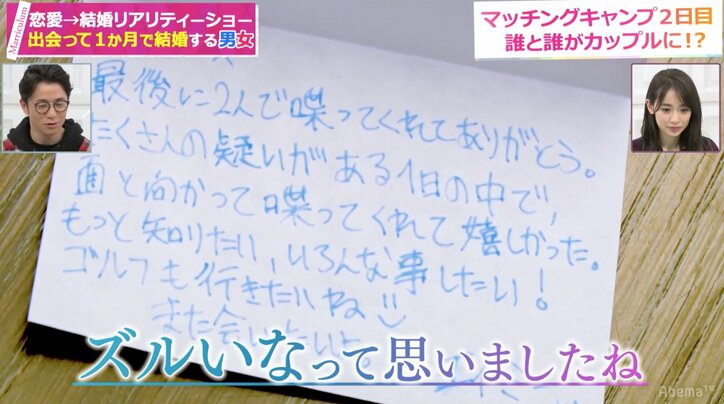 Marriculum
恋愛→結婚リアリティーショー
出会って1か月で結婚する男女
マッチングキャンプ2日目
誰と誰がカップルに!?
最後に2人で喋ってくれてありがとう。
たくさんの疑いがある1日の中で、
面と向かって喋ってくれて嬉しかった。
もっと知りたい、いろんな事したい!
ゴルフも行きたいね
また会い
ズルいなって思いましたね
AbemaTV